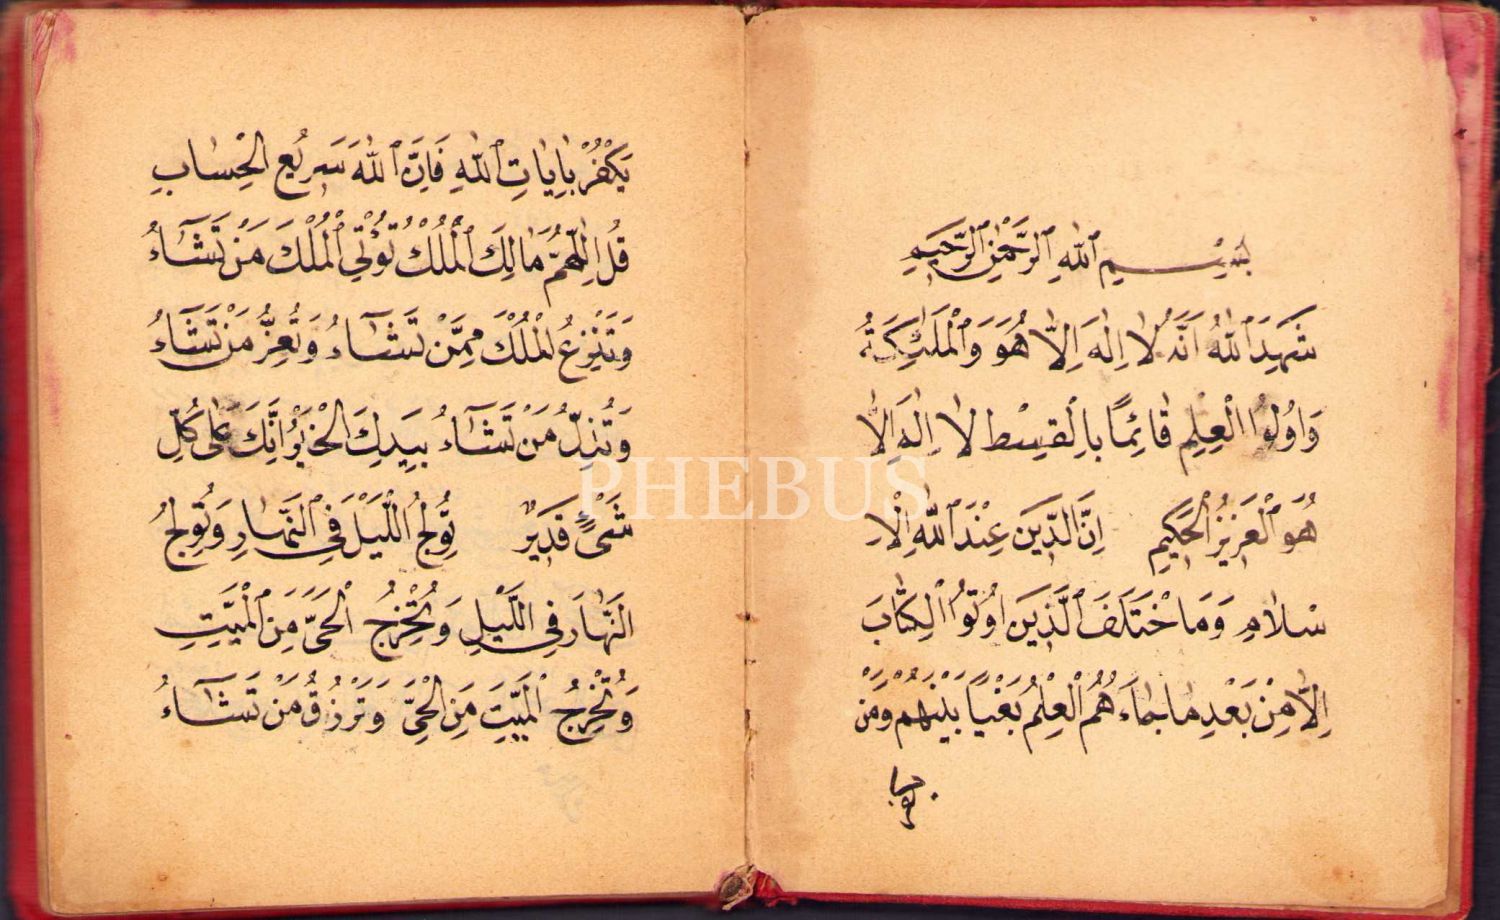 بِسْــــــمِ ٱللّٰهِ ٱلرَّحْمٰنِ ٱلرَّحِيمِ
شَهِدَ ٱللّٰهُ اَنَّهُ لَا اِلٰهَ اِلَّا هُوَ وَٱلْمَلٰئِكَةُ
وَاُولُوا الْعِلْمِ قَائِمًا بِالْقِسْطِ لَا اِلٰهَ اِلَّا
هُوَ ٱلْعَزِيزُ الْحَكِيمِ اِنَّ الدِّينَ عِنْدَ ٱللّٰهِ اْلاِ
سْلَامِ وَمَا خْتَلَفَ ٱلَّذِينَ اُوتُوا ٱلْكِتَابَ
اِلَّا مِنْ بَعْدِ مَا جَاءَ هُمُ ٱلْعِلْمُ بَغْيًا بَيْنَهُمْ وَمَنْ
يَكْفُرْ بِاٰيَاتِ ٱللّٰهِ فَاِنَّ ٱللّٰهَ سَرِيعُ الْحِسَابِ
قُلِ اللّٰهُمَّ مَالِكَ ٱلْمُلْكِ تُؤْتِي ٱلْمُلْكَ مَنْ تَشَآءُ
وَتَنْزِعُ لْمُلْكَ مِمَّنْ تَشَآءُ وَتُعِزُّ مَنْ تَشَآءُ
وَتُذِلُّ مَنْ تَشَآءُ بِيَدِكَ الْخَيْرُ اِنَّكَ عَلٰى كُلِّ
شَىْءٍ قَدِيرٌ تُولِجُ اللَّيْلَ فِي ٱلنَّهَارِ وَتُولِجُ
النَّهَارَ فِي اللَّيْلِ وَتُخْرِجُ ٱلْحَىَّ مِنَ ٱلْمَيِّتِ
وَتُخْرِجُ ٱلْمَيِّتَ مِنَ الْحَىِّ وَتَرْزُقُ مَنْ تَشَآءُ
PHEBUS